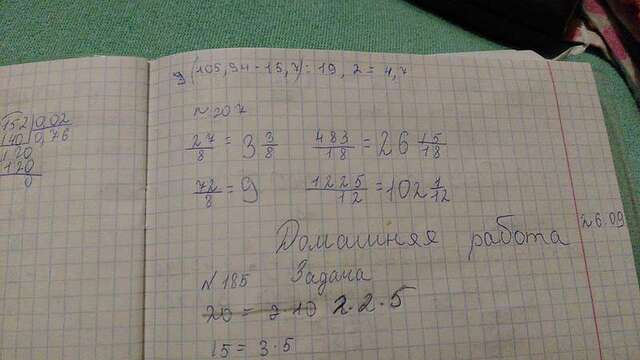 152 | 0,02
140 | 0,76
120
120
0
9 (105,94 - 15,7) : 19,2 = 4,7
№ 207
27/8 = 3 3/8 483/18 = 26 15/18
72/8 = 9 1225/12 = 102 1/12
26.09
Домашняя работа
№ 185 Задача
20 = 2·10 2·2·5
15 = 3·5